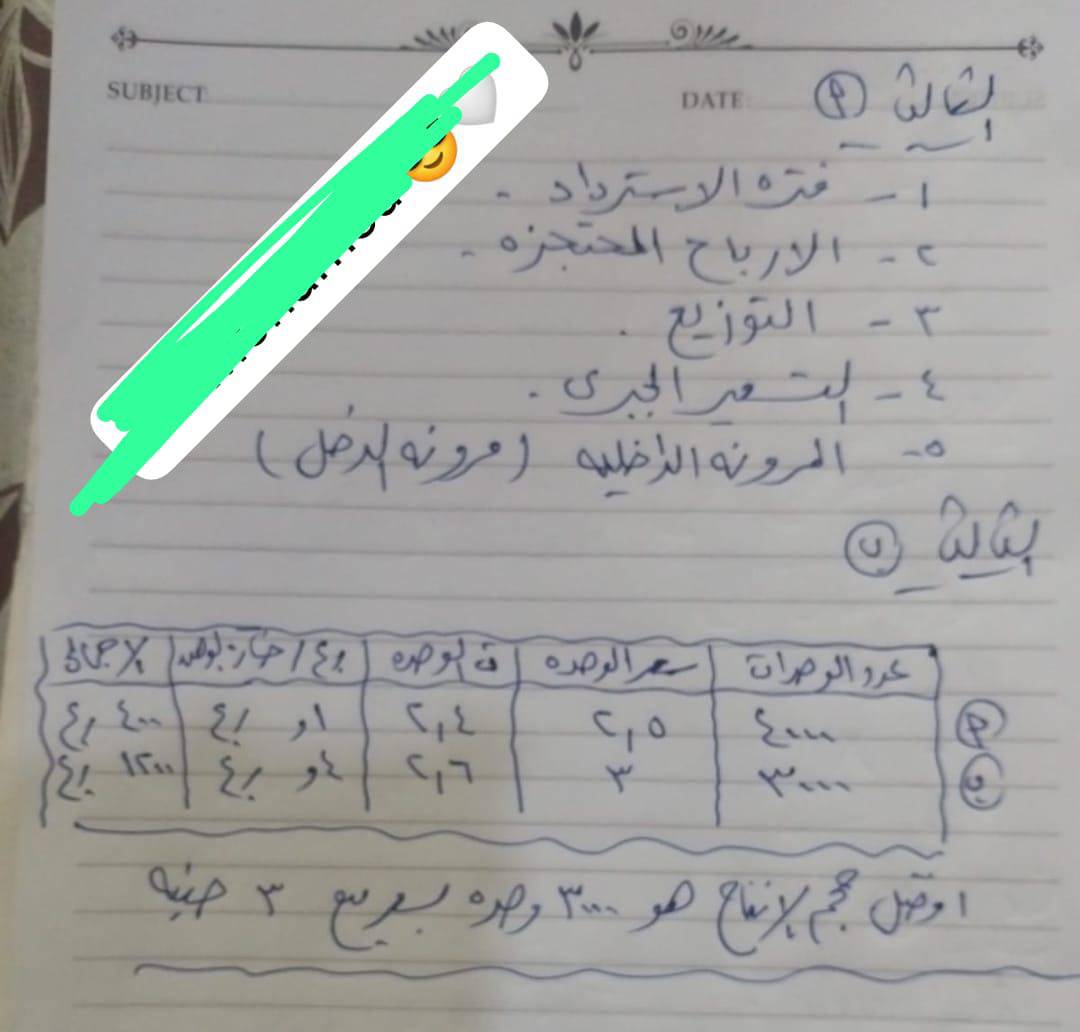 SUBJECT
DATE:
الثالث (م)
١ – فتره الاسترداد .
٢ – الارباح المحتجزه .
٣ – التوزيع .
٤ – التسعير الجبرى .
٥ – المرونه الداخليه ( مرونه الدخل )
الثالث (ب)
عدد الوحدات | سعر الوحده | ت الوحده | ربح / خسارة الوحده | الاجمالى
(م) ٤٠٠٠ | ٢,٥ | ٢,٤ | ,١ ربح | ٤٠٠ ربح
(ب) ٣٠٠٠ | ٣ | ٢,٦ | ,٤ ربح | ١٢٠٠ ربح
افضل حجم الانتاج هو ٣٠٠٠ وحده بسعر بيع ٣ جنيه